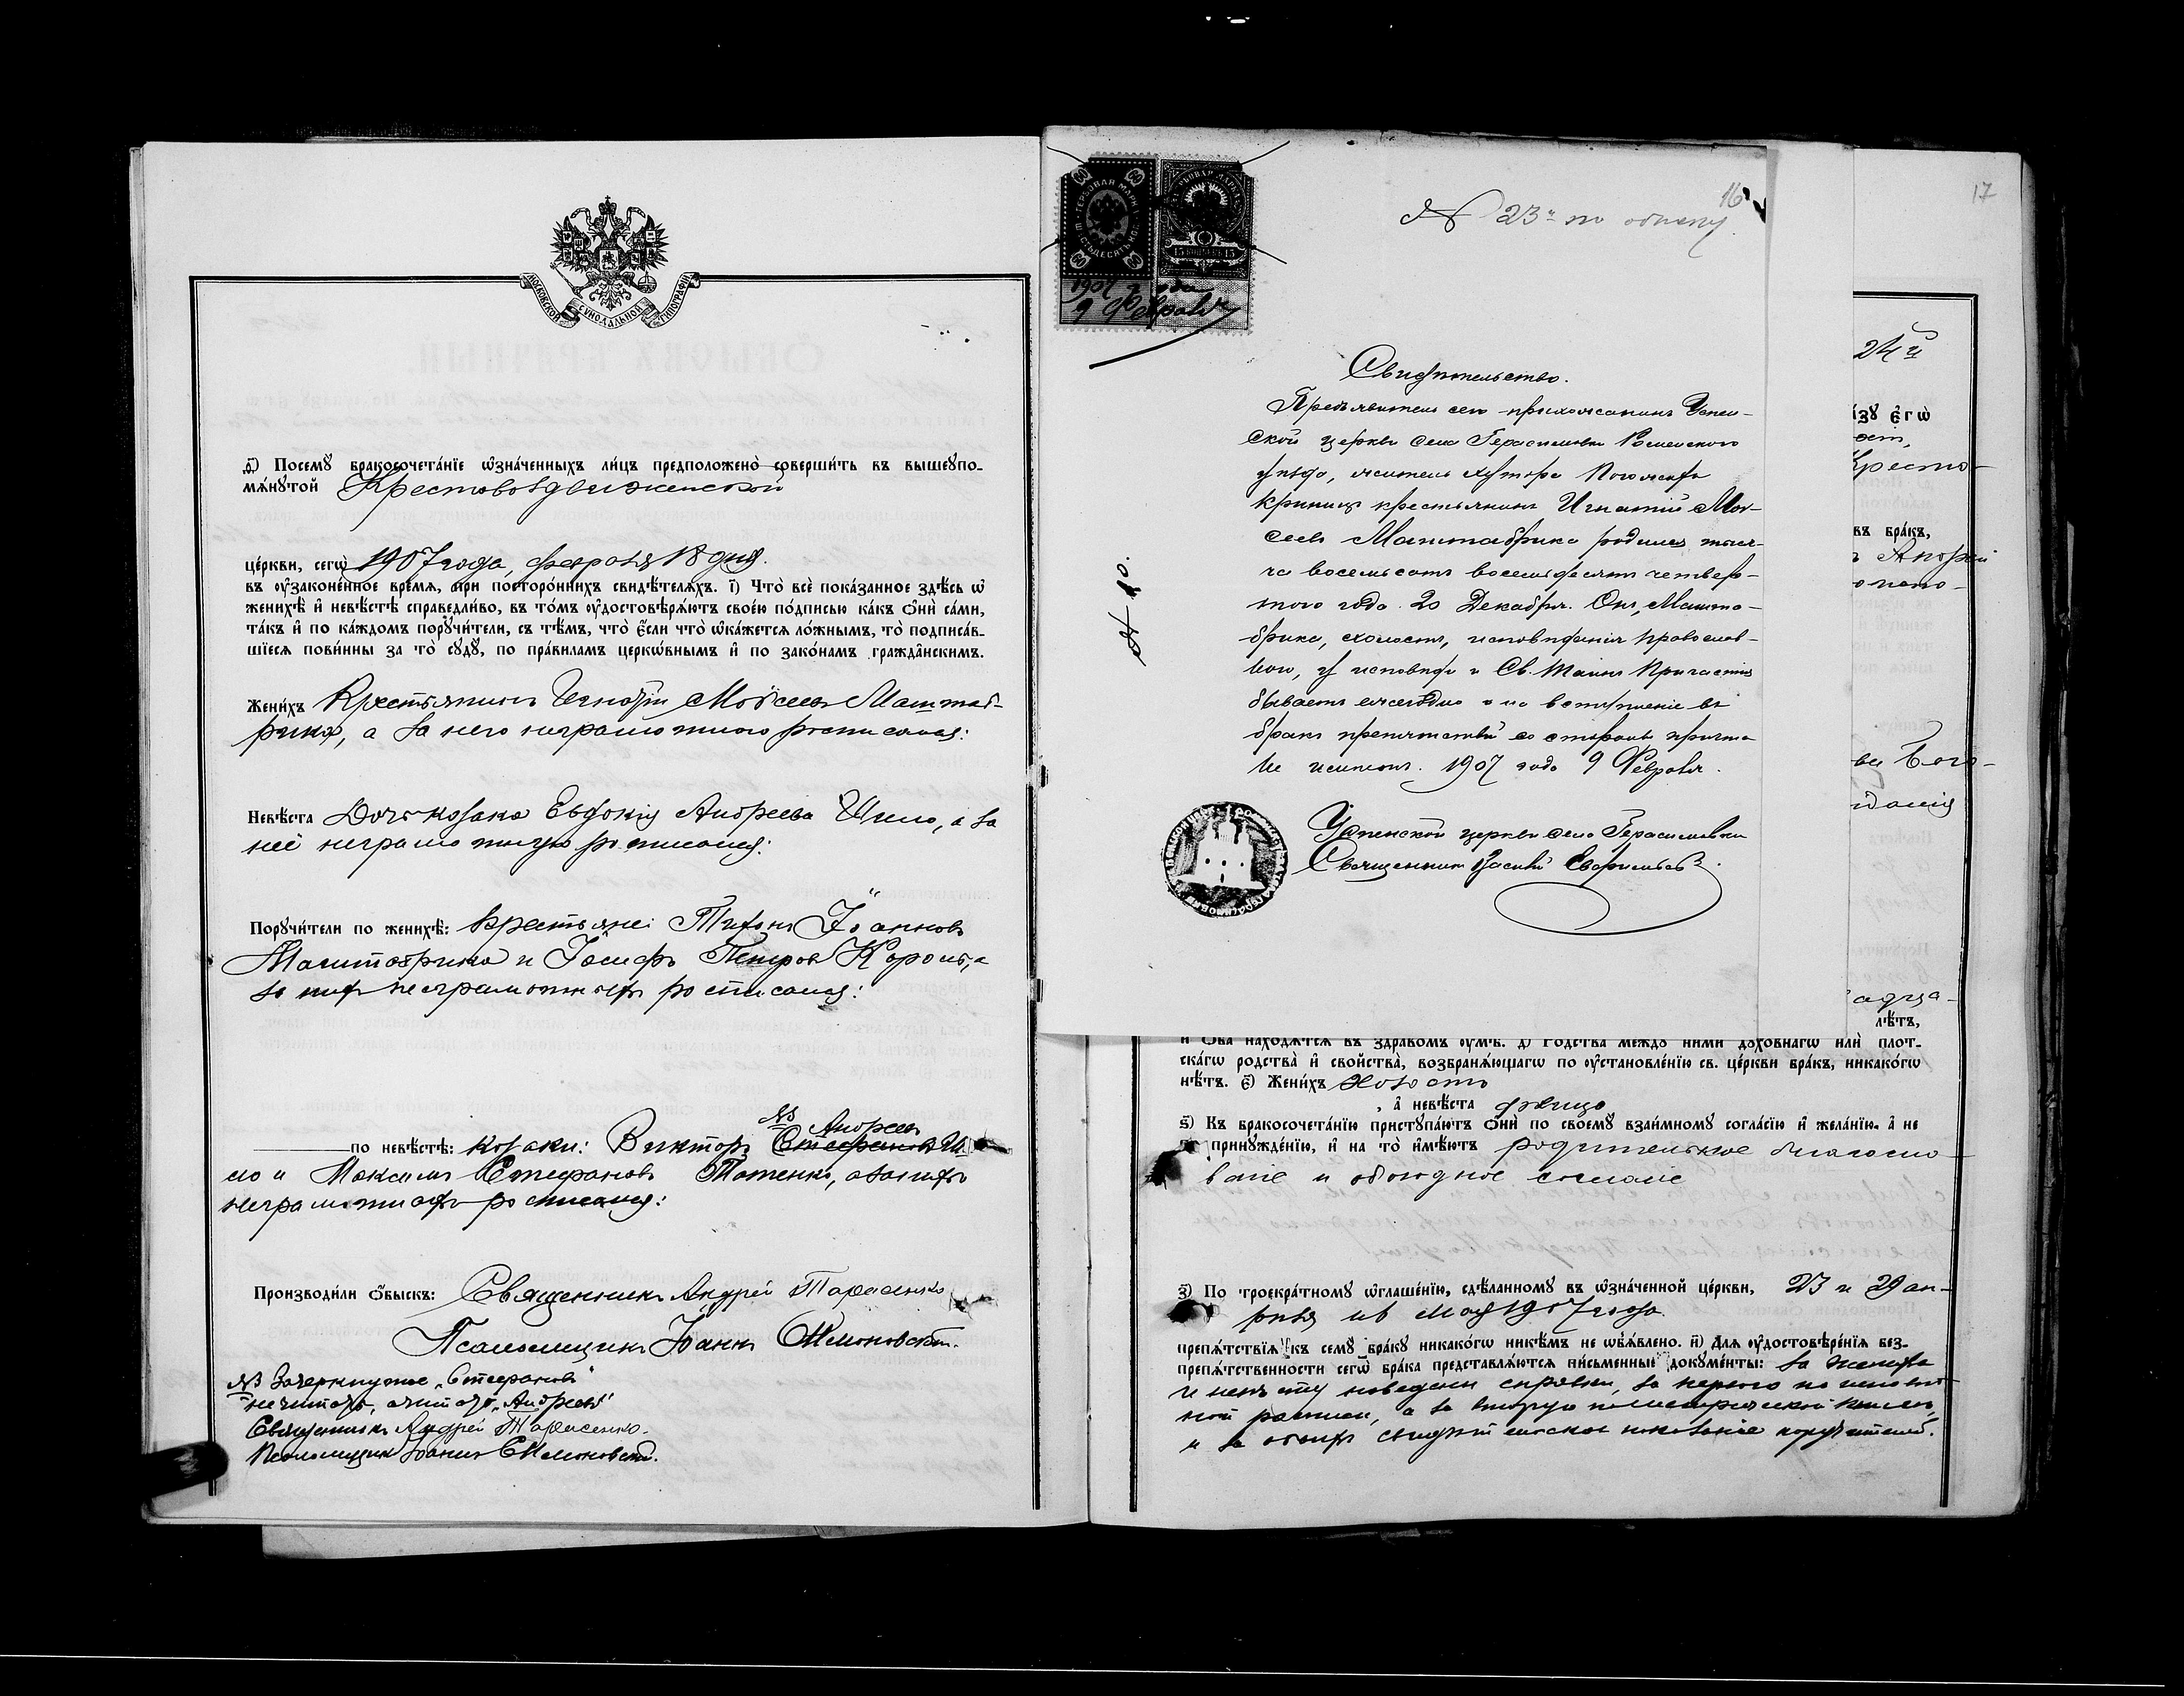 МОСКОВСКОЙ СѴНОДАЛЬНОЙ ТИПОГРАФІИ
ѳ҃) Посемꙋ бракосочета́нїе ѡ҆зна́ченныхъ ли́цъ предположено̀ соверши́ть въ вышеꙋпо-
мѧ́нꙋтой Крестовоздвиженской
це́ркви, сегѡ̀ 1907 года, февраля 18 дня.
въ ꙋ҆зако́ненное вре́мѧ, при посторо́ннихъ свидѣ́телѧхъ. і҃) Что̀ всѐ пока́занное здѣ́сь ѡ҆
женихѣ̀ и҆ невѣ́стѣ справедли́во, въ то́мъ ꙋ҆достовѣрѧ́ютъ свое́ю по́дписью ка́къ ѻ҆нѝ са́ми,
та́къ и҆ по ка́ждомъ порꙋчи́тели, съ тѣ́мъ, что̀ є҆́сли что̀ ѡ҆ка́жетсѧ ло́жнымъ, то̀ подписа́в-
шїесѧ пови́нны за то̀ сꙋдꙋ̀, по пра́виламъ церко́внымъ и҆ по зако́намъ гражда̑нскимъ.
Жени́хъ Крестьянинъ Игнатій Моѵсеевъ Маштаб-
рика, а за него неграмотнаго росписался:
Невѣ́ста Дочь козака Евдокія Андреева Шило, а за
неё неграмотную росписался:
Порꙋчи́тели по женихѣ̀: Крестьяне: Тихонъ Іоанновъ
Маштабрика и Іосифъ Петровъ Король, а
за нихъ неграмотныхъ росписался:
NB Андреевъ
по невѣ́стѣ: козаки: Викторъ Стефановъ Ши-
ло и Максимъ Стефановъ Тотенко, а за нихъ
неграмотныхъ росписался:
Производи́ли ѻ҆́быскъ: Священникъ Андрей Тарасенко
Псаломщикъ Іоаннъ
NB Зачеркнутое „Стефановъ"
не читать, а читать „Андреевъ"
Священникъ Андрей Тарасенко.
Псаломщикъ Іоаннъ
ГЕРБОВАЯ МАРКА
ШЕСТЬДЕСЯТЪ КОП.
60 60 60 60
ГЕРБОВАЯ МАРКА
15 КОПѢЕКЪ 15
1907 года
9 Февраля
16
№ 23й по обыску.
№ 10.
Свидѣтельство.
Предъявитель сего прихожанинъ Успен-
ской церкви села Герасимовки Роменского
уѣзда, житель хутора Погожая
Криница крестьянинъ Игнатій Мои-
сеевъ Маштабрика родился тыся-
ча восемьсотъ восемьдесятъ четвер-
таго года 20 Декабря. Онъ, Машта-
брика, холостъ, исповѣданія православ-
наго, у исповѣди и Св. Таинъ Причастія
бываетъ ежегодно и на вступленіе въ
бракъ препятствій со стороны причта
не имѣетъ. 1907 года 9 Февраля.
Успенской церкви села Герасимовки
Священникъ
17
24й
ꙁꙋ є҆гѡ̀
Кресто-
въ бра́къ,
Андрей
Бого-
адца-
лѣ́тъ,
и҆ ѻ҆́ба нахо́дѧтсѧ въ здра́вомъ ꙋ҆мѣ̀. д҃) Родства̀ междꙋ̀ ни́ми дꙋхо́внагѡ и҆лѝ плот-
ска́гѡ родства̀ и҆ сво́йства, возбранѧ́ющагѡ по ꙋ҆становле́нїю св. це́ркви бра́къ, никако́гѡ
нѣ́тъ. є҃) Жени́хъ холостъ
, а҆ невѣ́ста дѣвица
ѕ҃) Къ бракосочета́нїю пристꙋпа́ютъ ѻ҆нѝ по своемꙋ̀ взаи́мномꙋ согла́сїю и҆ жела́нїю, а҆ не
принꙋжде́нїю, и҆ на то̀ и҆мѣ́ютъ родительское благосло-
веніе и обоюдное согласіе
з҃) По троекра́тномꙋ ѡ҆глаше́нїю, сдѣ́ланномꙋ въ ѡ҆зна́ченной це́ркви, 23 и 29 ап-
рѣля и 6 мая 1907 года
препѧ́тствїѧ къ семꙋ̀ бра́кꙋ никако́гѡ никѣ́мъ не ѡ҆б̾ѧ́влено. и҃) Длѧ ꙋ҆достовѣре́нїѧ без-
препѧ́тственности сегѡ̀ бра́ка представлѧ́ютсѧ пи́сьменные докꙋме́нты: за жениха
и невѣсту наведены справки, за перваго по исповѣд-
ной росписи, а за вторую по метрической книгѣ,
и за обоихъ свидѣтельское показаніе поручителей.